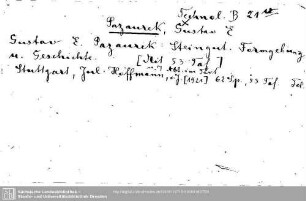 Technol. B 21
Pazaurek, Gustav E
Gustav E. Pazaurek Steingut. Formgebung
u. Geschichte. [Mit 53 Taf.]
u. 7 Abb. im Text
Stuttgart, Jul. Hoffmann, o. J. [1921] 62 Sp., 53 Taf. Fol.
Sächsische Landesbibliothek –
Staats- und Universitätsbibliothek Dresden